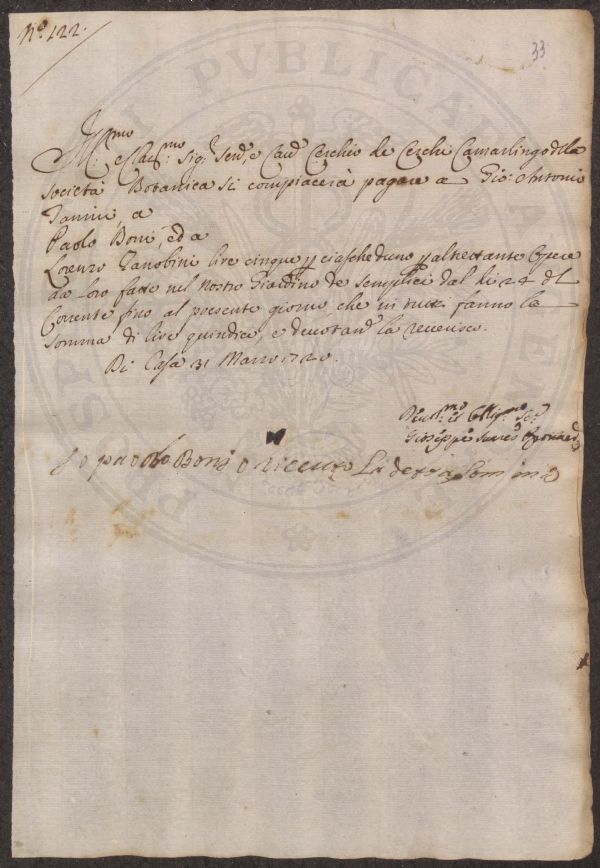 N.º 122.
33
Ill.mo
M.: e Clar.mo Sig.r Sen.e e Cav.r Cerchio de Cerchi Camarlingo della
Società Botanica si compiacerà pagare a Gio: Antonio
Vannini, a
Paolo Boni, ed a
Lorenzo Zanobini lire cinque p ciascheduno p altrettante Opere
da loro fatte nel nostro Giardino de semplici dal dì 24 del
Corrente fino al presente giorno, che in tutti fanno la
somma di lire quindici, e devotam.e la reverisco.
Di Casa 31 Marzo 1720.
Dev.mo et Obblig.mo Ser.
Giuseppe
Io paolo Boni o riceuto La detta somma
PVBLICAE